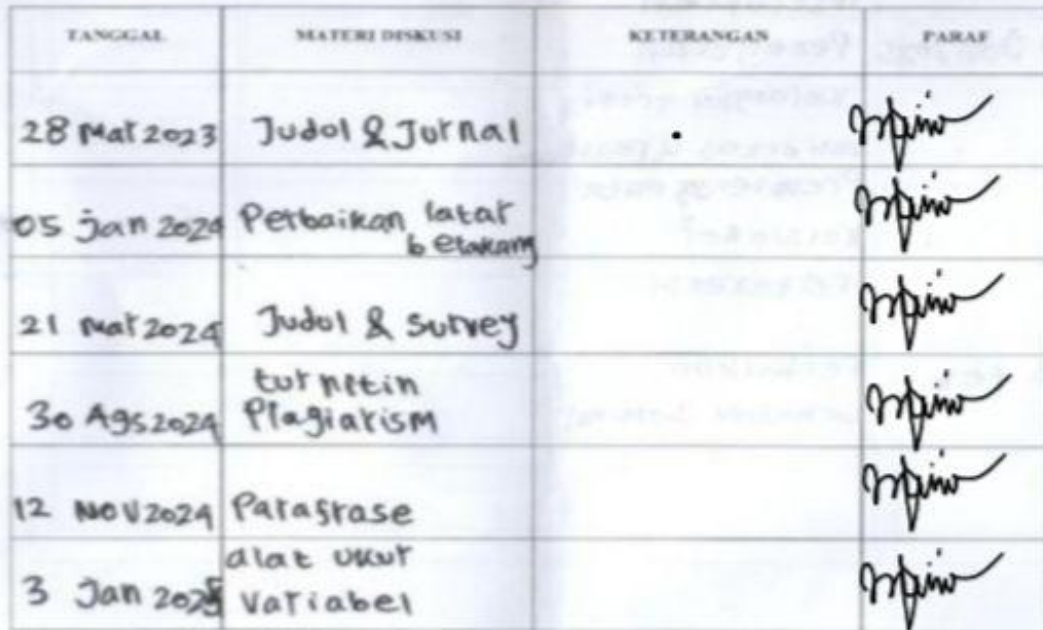 TANGGAL MATERI DISKUSI KETERANGAN PARAF
28 Mar 2023 Judol & Jurnal
05 Jan 2024 Perbaikan latar
belakang
21 Mar 2024 Judol & Survey
turnitin
30 Ags 2024 Plagiarism
12 Nov 2024 Parafrase
alat ukur
3 Jan 2025 Variabel